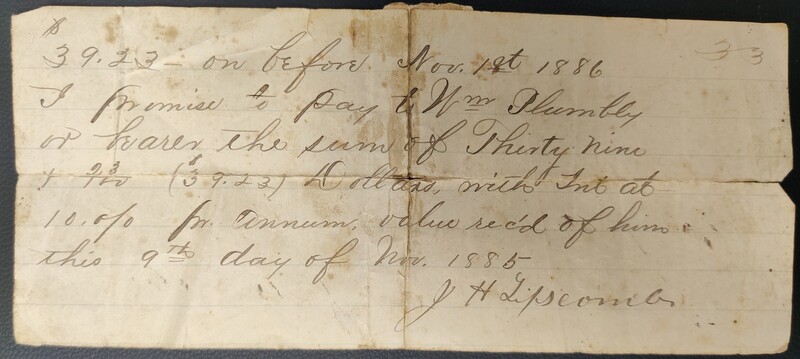 $39.23 - on before Nov. 1st 1886
33
I promise to pay to Wm Plumbly
or bearer the sum of Thirty nine
& 23/100 ($39.23) Dollars, with Int at
10.0/0 pr. Annum, value rec'd of him
this 9th day of Nov. 1885
J H Lipscomb